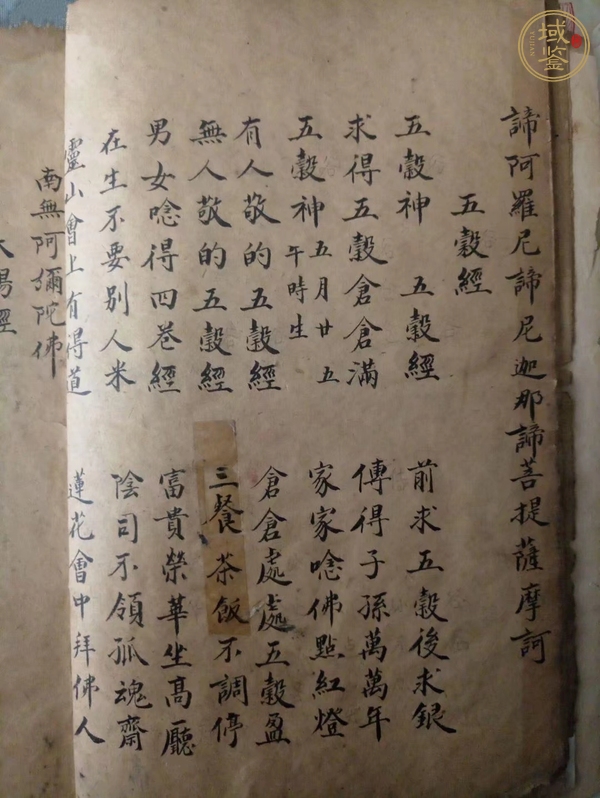 諦阿羅尼諦尼迦那諦菩提薩摩訶
五穀經
五穀神 五穀經 前求五穀後求銀
求得五穀倉倉滿 傳得子孫萬萬年
五穀神五月廿五午時生 家家唸佛點紅燈
有人敬的五穀經 倉倉處處五穀盈
無人敬的五穀經 三餐茶飯不調停
男女唸得四卷經 富貴榮華坐高廳
在生不要別人米 陰司不領孤魂齋
靈山會上有得道 蓮花會中拜佛人
南無阿彌陀佛
太陽經
域鉴
YUJIAN